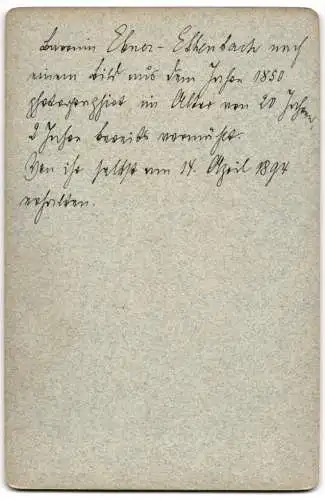 Baronin Ebner-Eschenbach nach
einem Bild aus dem Jahre 1850
photographiert im Alter von 20 Jahren,
2 Jahre bereits vermählt.
Von ihr selbst am 14. April 1894
erhalten.